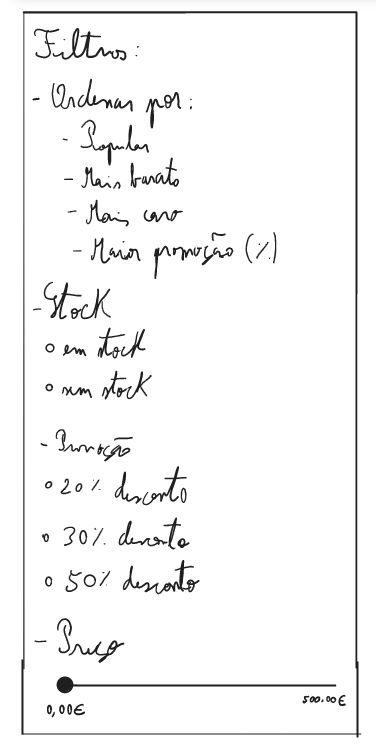 Filtros:
- Ordenar por:
- Popular
- Mais barato
- Mais caro
- Maior promoção (%)
- Stock
o em stock
o sem stock
- Promoção
o 20% desconto
o 30% desconto
o 50% desconto
- Preço
0,00€
500.00€